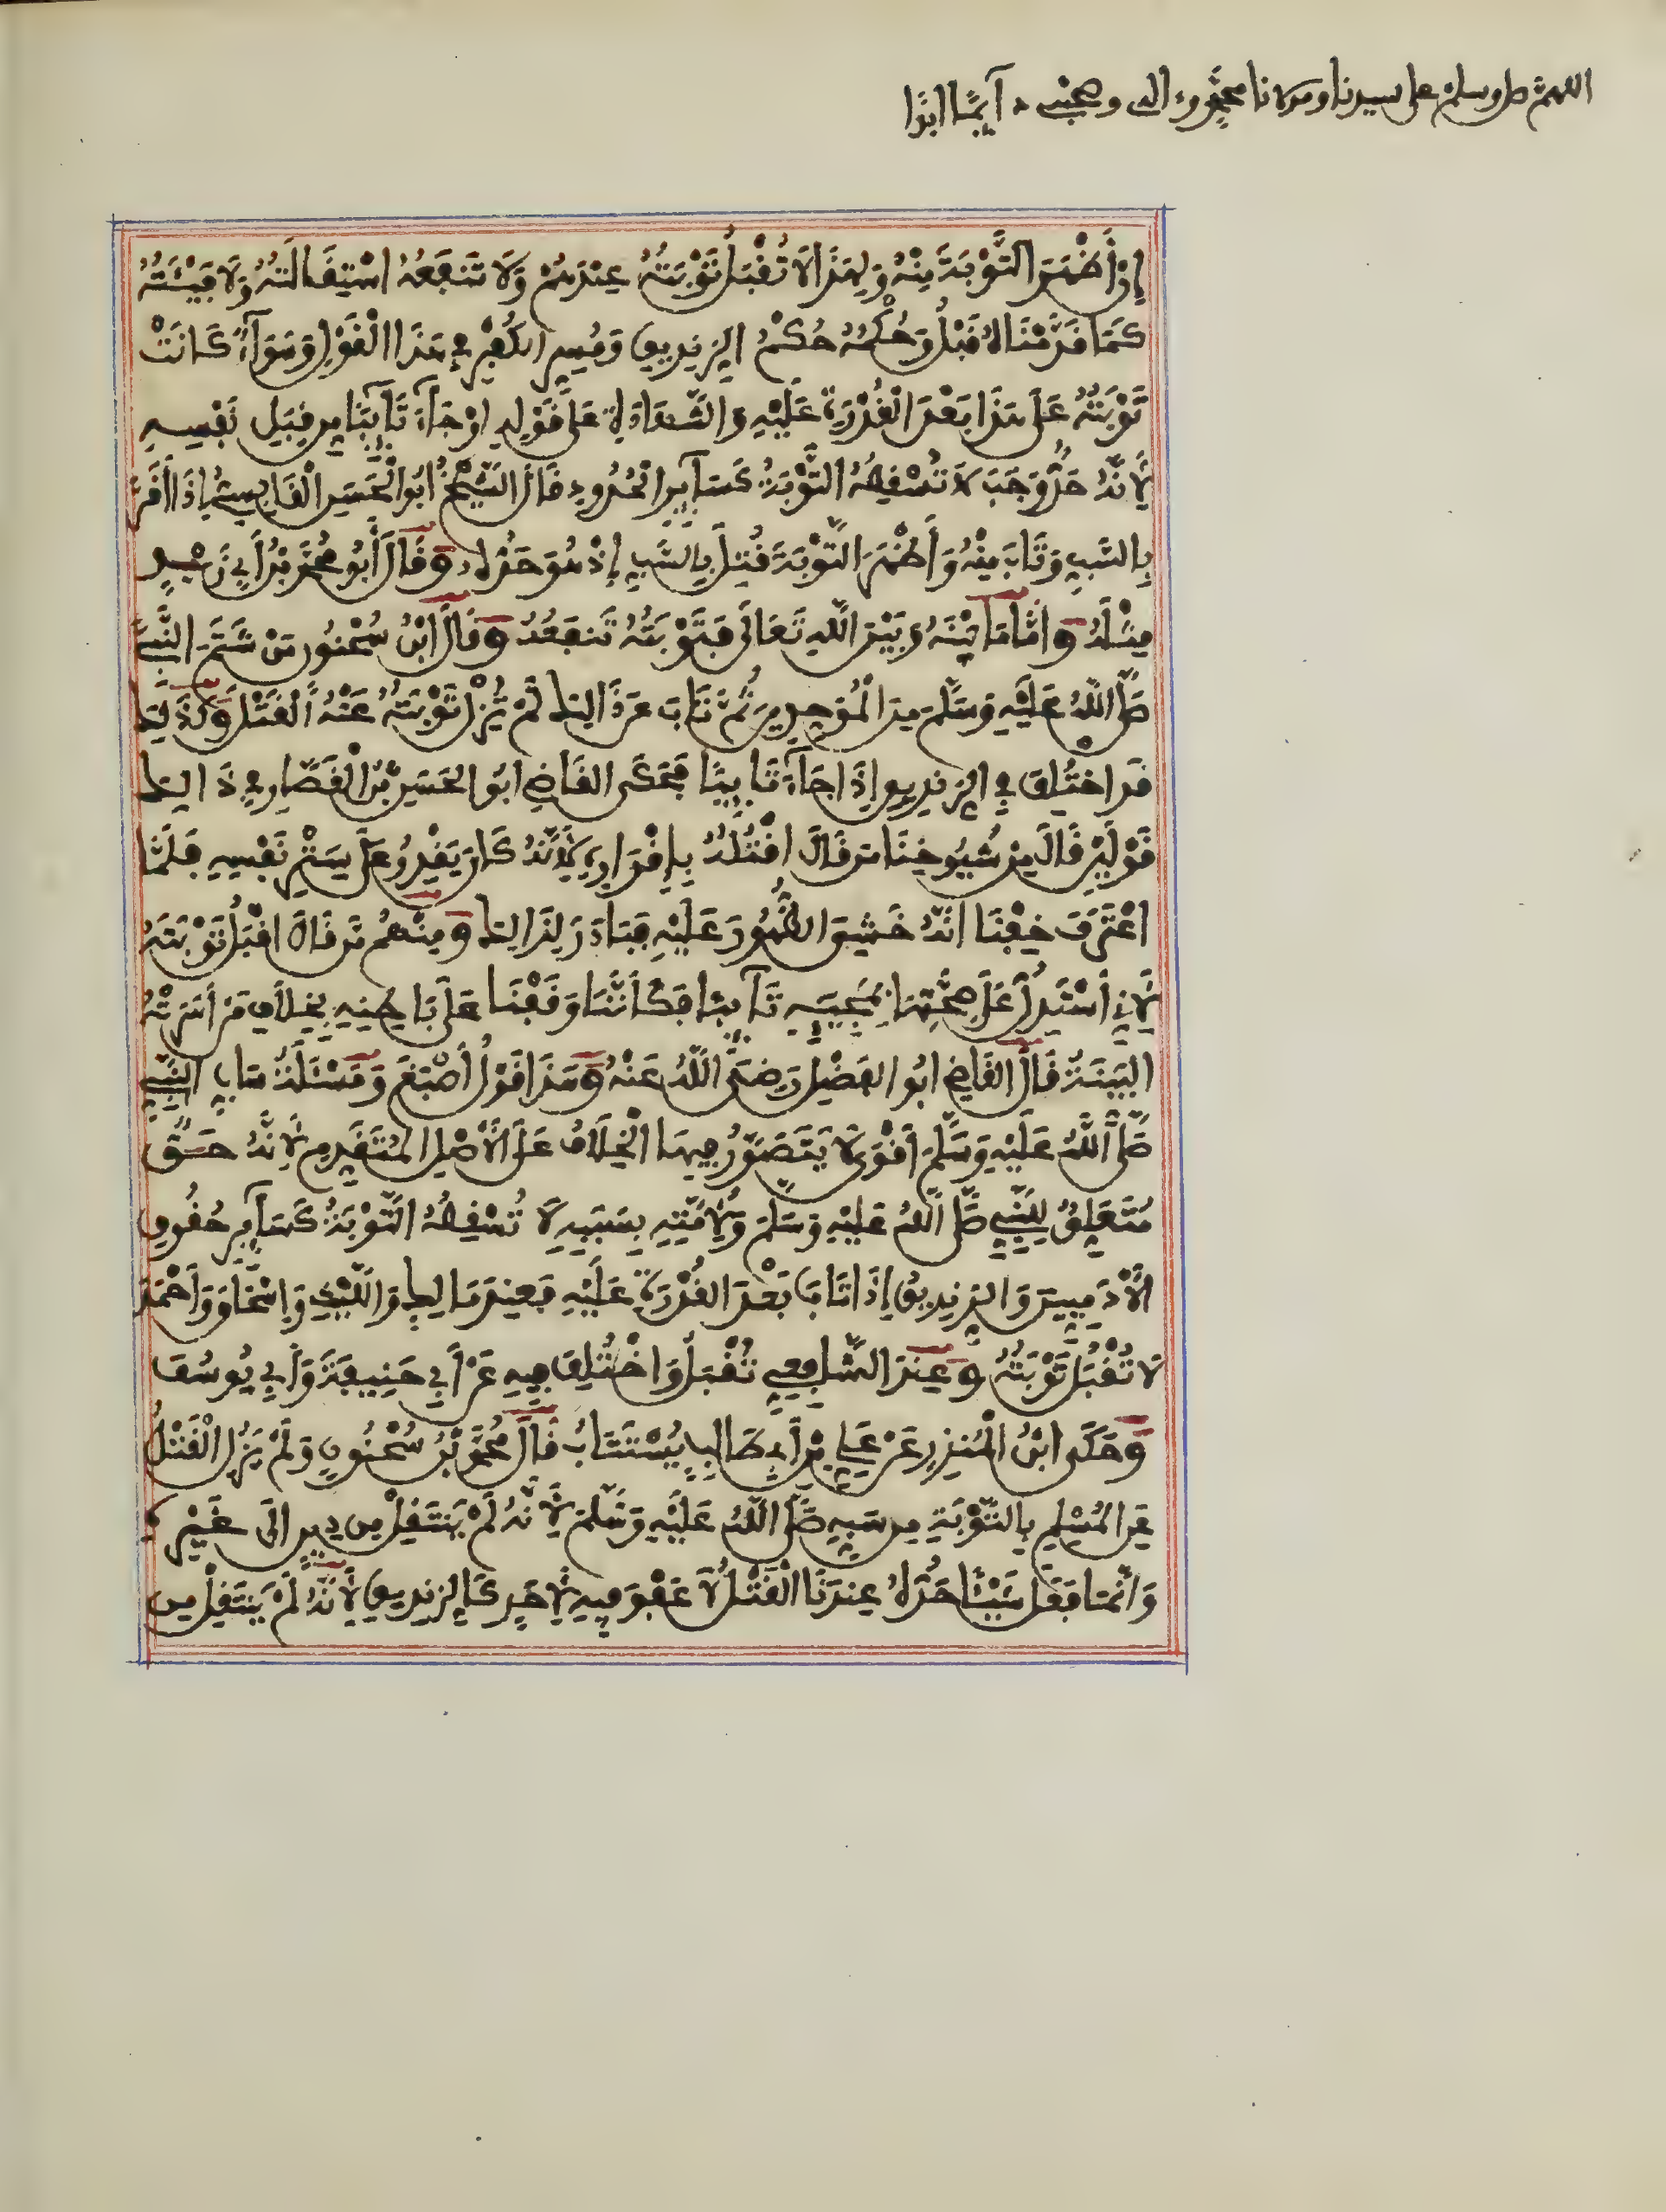 اللهم صل وسلم على سيدنا ومولانا محمد وءاله وصحبه دآيما ابدا
إِذْ أَظْهَرَ التَّوْبَةَ مِنْهُ وَلِهَذَا لَا تُقْبَلُ تَوْبَتُهُ عِنْدَهُمْ وَلَا تَنْفَعُهُ اسْتِقَالَتُهُ وَلَا فَيْئَتُهُ
كَمَا قَدَّمْنَاهُ قَبْلُ وَحُكْمُهُ حُكْمُ الزِّنْدِيقِ وَمُسِرِّ الْكُفْرِ فِي هَذَا الْقَوْلِ وَسَوَآءٌ كَانَتْ
تَوْبَتُهُ عَلَى هَذَا بَعْدَ الْقُدْرَةِ عَلَيْهِ وَالشَّهَادَةِ عَلَى قَوْلِهِ اوْ جَآءَ تَآئِبًا مِنْ قِبَلِ نَفْسِهِ
لِأَنَّهُ حَدٌّ وَجَبَ لَا تُسْقِطُهُ التَّوْبَةُ كَسَآئِرِ الْحُدُودِ قَالَ الشَّيْخُ ابُو الْحَسَنِ الْقَابِسِيُّ إِذَا أَقَرَّ
بِالسَّبِّ وَتَابَ مِنْهُ وَأَظْهَرَ التَّوْبَةَ قُتِلَ بِالسَّبِّ إِذْ هُوَ حَدُّهُ وَقَالَ أَبُو مُحَمَّدِ بْنُ أَبِي زَيْدٍ
مِثْلَهُ وَامَّا مَا بَيْنَهُ وَبَيْنَ اللَّهِ تَعَالَى فَتَوْبَتُهُ تَنْفَعُهُ وَقَالَ ابْنُ سُحْنُون مَنْ شَتَمَ النَّبِيَّ
صَلَّى اللَّهُ عَلَيْهِ وَسَلَّمَ مِنَ الْمُوَحِّدِينَ ثُمَّ تَابَ عَنْ ذَالِكَ لَمْ تُزِلْ تَوْبَتُهُ عَنْهُ الْقَتْلَ وَكَذَلِكَ
قَد اخْتُلِفَ فِي الزِّنْدِيقِ إِذَا جَآءَ تَائِبًا فَحَكَى القَاضِي ابُو الْحَسَنِ بْنُ الْقَصَّارِ فِي ذَالِكَ
قَوْلَيْنِ قَالَ مِنْ شُيُوخِنَا مَن قَالَ اقْتُلُهُ بِإِقْرَارِهِ لِأَنَّهُ كَانَ يَقْدِرُ عَلَى سَتْرِ نَفْسِهِ فَلَمَّا
اعْتَرَفَ خِفْنَا انَّهُ خَشِيَ الظُّهُورَ عَلَيْهِ فَبَادَرَ لِذَالِكَ وَمِنْهُم مَن قَالَ اقْبَلُ تَوْبَتَهُ
لِأَنِّي أَسْتَدِلُّ عَلَى صِحَّتِهَا بِمَجِيئِهِ تَآئِبًا فَكَأَنَّنَا وَقَفْنَا عَلَى بَاطِنِهِ بِخِلَافِ مَنْ أَسَرَتْهُ
الْبَيِّنَةُ قَالَ الْقَاضِي ابُو الْفَضْلِ رَضِيَ اللَّهُ عَنْهُ وَهَذَا قَوْلُ أَصْبَغَ وَمَسْئَلَةُ سَابِّ النَّبِيِّ
صَلَّى اللَّهُ عَلَيْهِ وَسَلَّمَ أَقْوَى لَا يَتَصَوَّرُ فِيهَا الْخِلَافُ عَلَى الْأَصْلِ الْمُتَقَدِّمِ لِأَنَّهُ حَقٌّ
مُتَعَلِّقٌ لِلنَّبِيِّ صَلَّى اللَّهُ عَلَيْهِ وَسَلَّمَ وَلِأُمَّتِهِ بِسَبَبِهِ لَا تُسْقِطُهُ التَّوْبَةُ كَسَآئِرِ حُقُوقِ
الْأَدَمِيِّينَ وَالزِّنْدِيقُ إِذَا تَابَ بَعْدَ الْقُدْرَةِ عَلَيْهِ فَعِنْدَ مَالِكٍ وَاللَّيْثِ وَإِسْحَاقَ وَأَحْمَدَ
لَا تُقْبَلُ تَوْبَتُهُ وَعِنْدَ الشَّافِعِيِّ تُقْبَلُ وَاخْتُلِفَ فِيهِ عَنْ أَبِي حَنِيفَةَ وَأَبِي يُوسُفَ
وَحَكَى ابْنُ الْمُنْذِرِ عَنْ عَلِيِّ بْنِ أَبِي طَالِبٍ يُسْتَتَابُ قَالَ مُحَمَّدُ بْنُ سُحْنُونٍ وَلَمْ يَزُلِ الْقَتْلُ
عَنِ الْمُسْلِمِ بِالتَّوْبَةِ مِن سَبِّهِ صَلَّى اللَّهُ عَلَيْهِ وَسَلَّمَ لِأَنَّهُ لَمْ يَنتَقِلْ مِن دِينٍ الَى غَيْرِهِ
وَانَّمَا فَعَلَ شَيْئًا حَدُّهُ عِندَنَا الْقَتْلُ لَا عَفْوَ فِيهِ لِأَحَدٍ كَالزِّنْدِيقِ لِأَنَّهُ لَمْ يَنتَقِلْ مِن